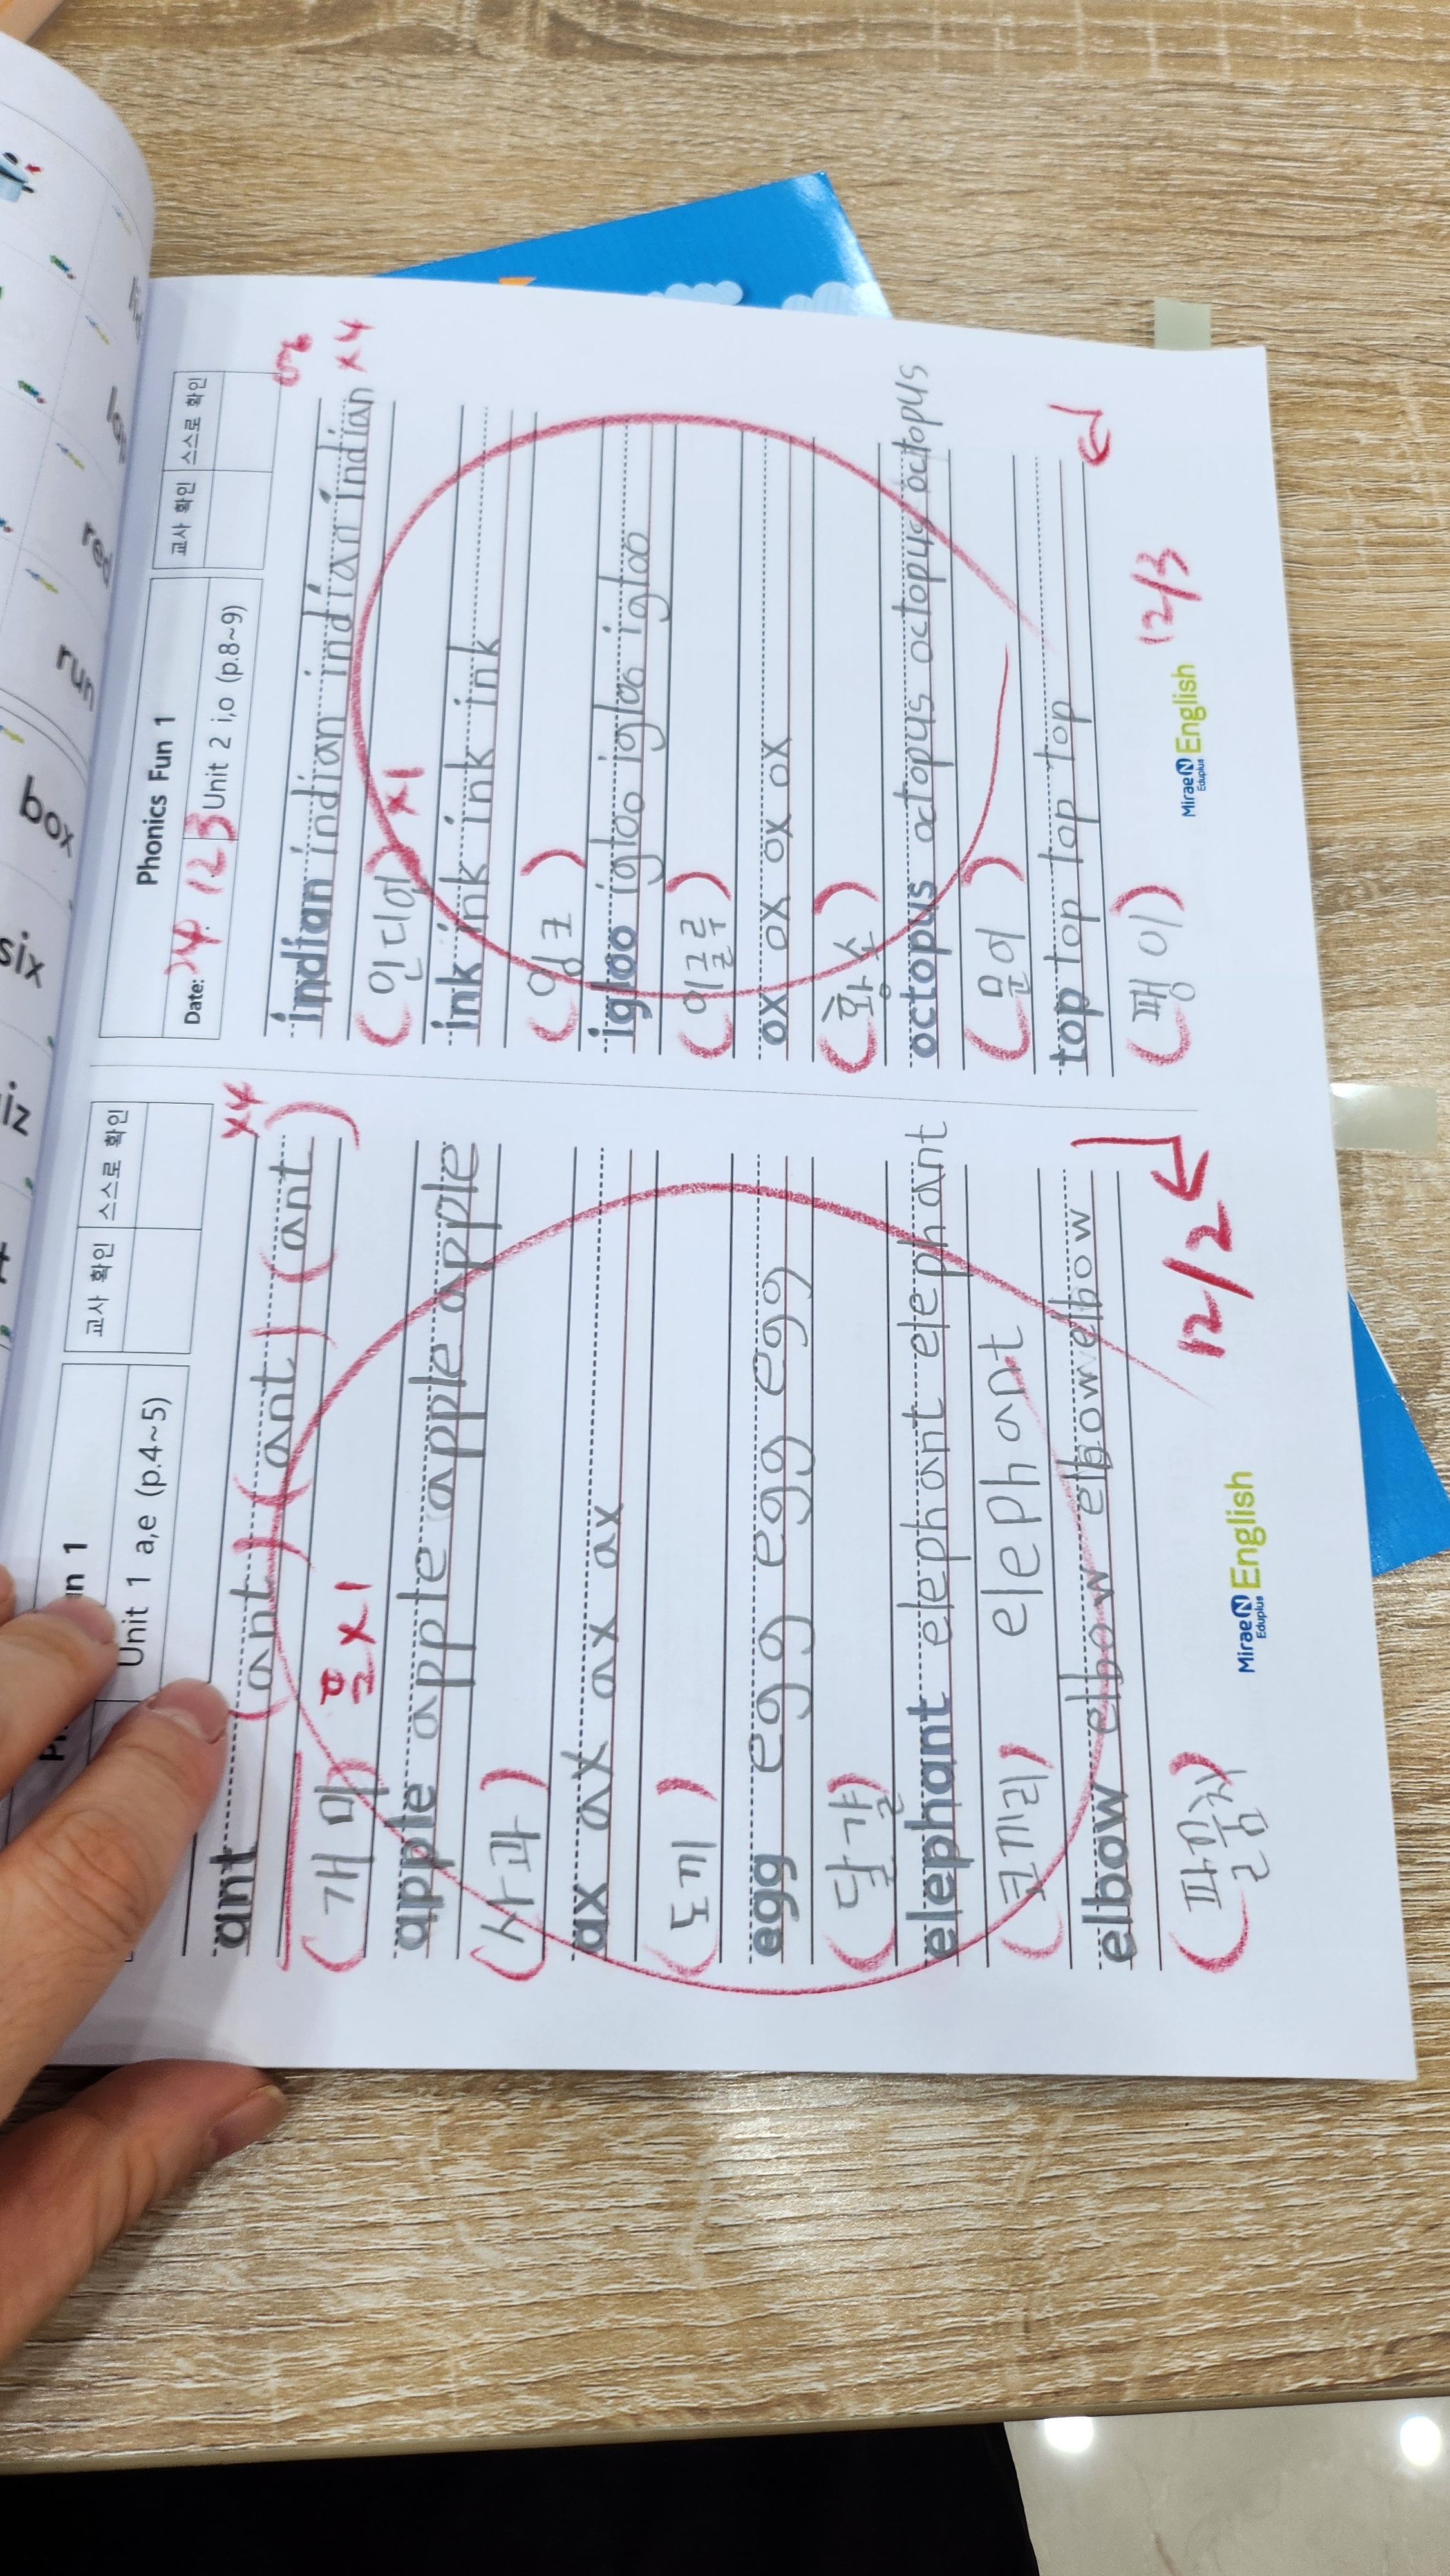 box
six
iz
run
red
un 1
Unit 1 a,e (p.4~5)
교사 확인 스스로 확인
x4
ant (ant) (ant) (ant)
(개미) 뜻 x1
apple apple apple apple apple
(사과)
ax ax ax ax ax
(도끼)
egg egg egg egg egg
(달걀)
elephant elephant elephant elephant
(코끼리) elephant
elbow elbow elbow elbow elbow
(팔꿈치)
12/2
Mirae N Eduplus English
Phonics Fun 1
Date: 24 12 3 Unit 2 i,o (p.8~9)
교사 확인 스스로 확인
x4
indian indian indian indian indian
(인디언) x1
ink ink ink ink ink
(잉크)
igloo igloo igloo igloo igloo
(이글루)
ox ox ox ox ox
(황소)
octopus octopus octopus octopus octopus
(문어)
top top top top top
(팽이)
12/3
Mirae N Eduplus English